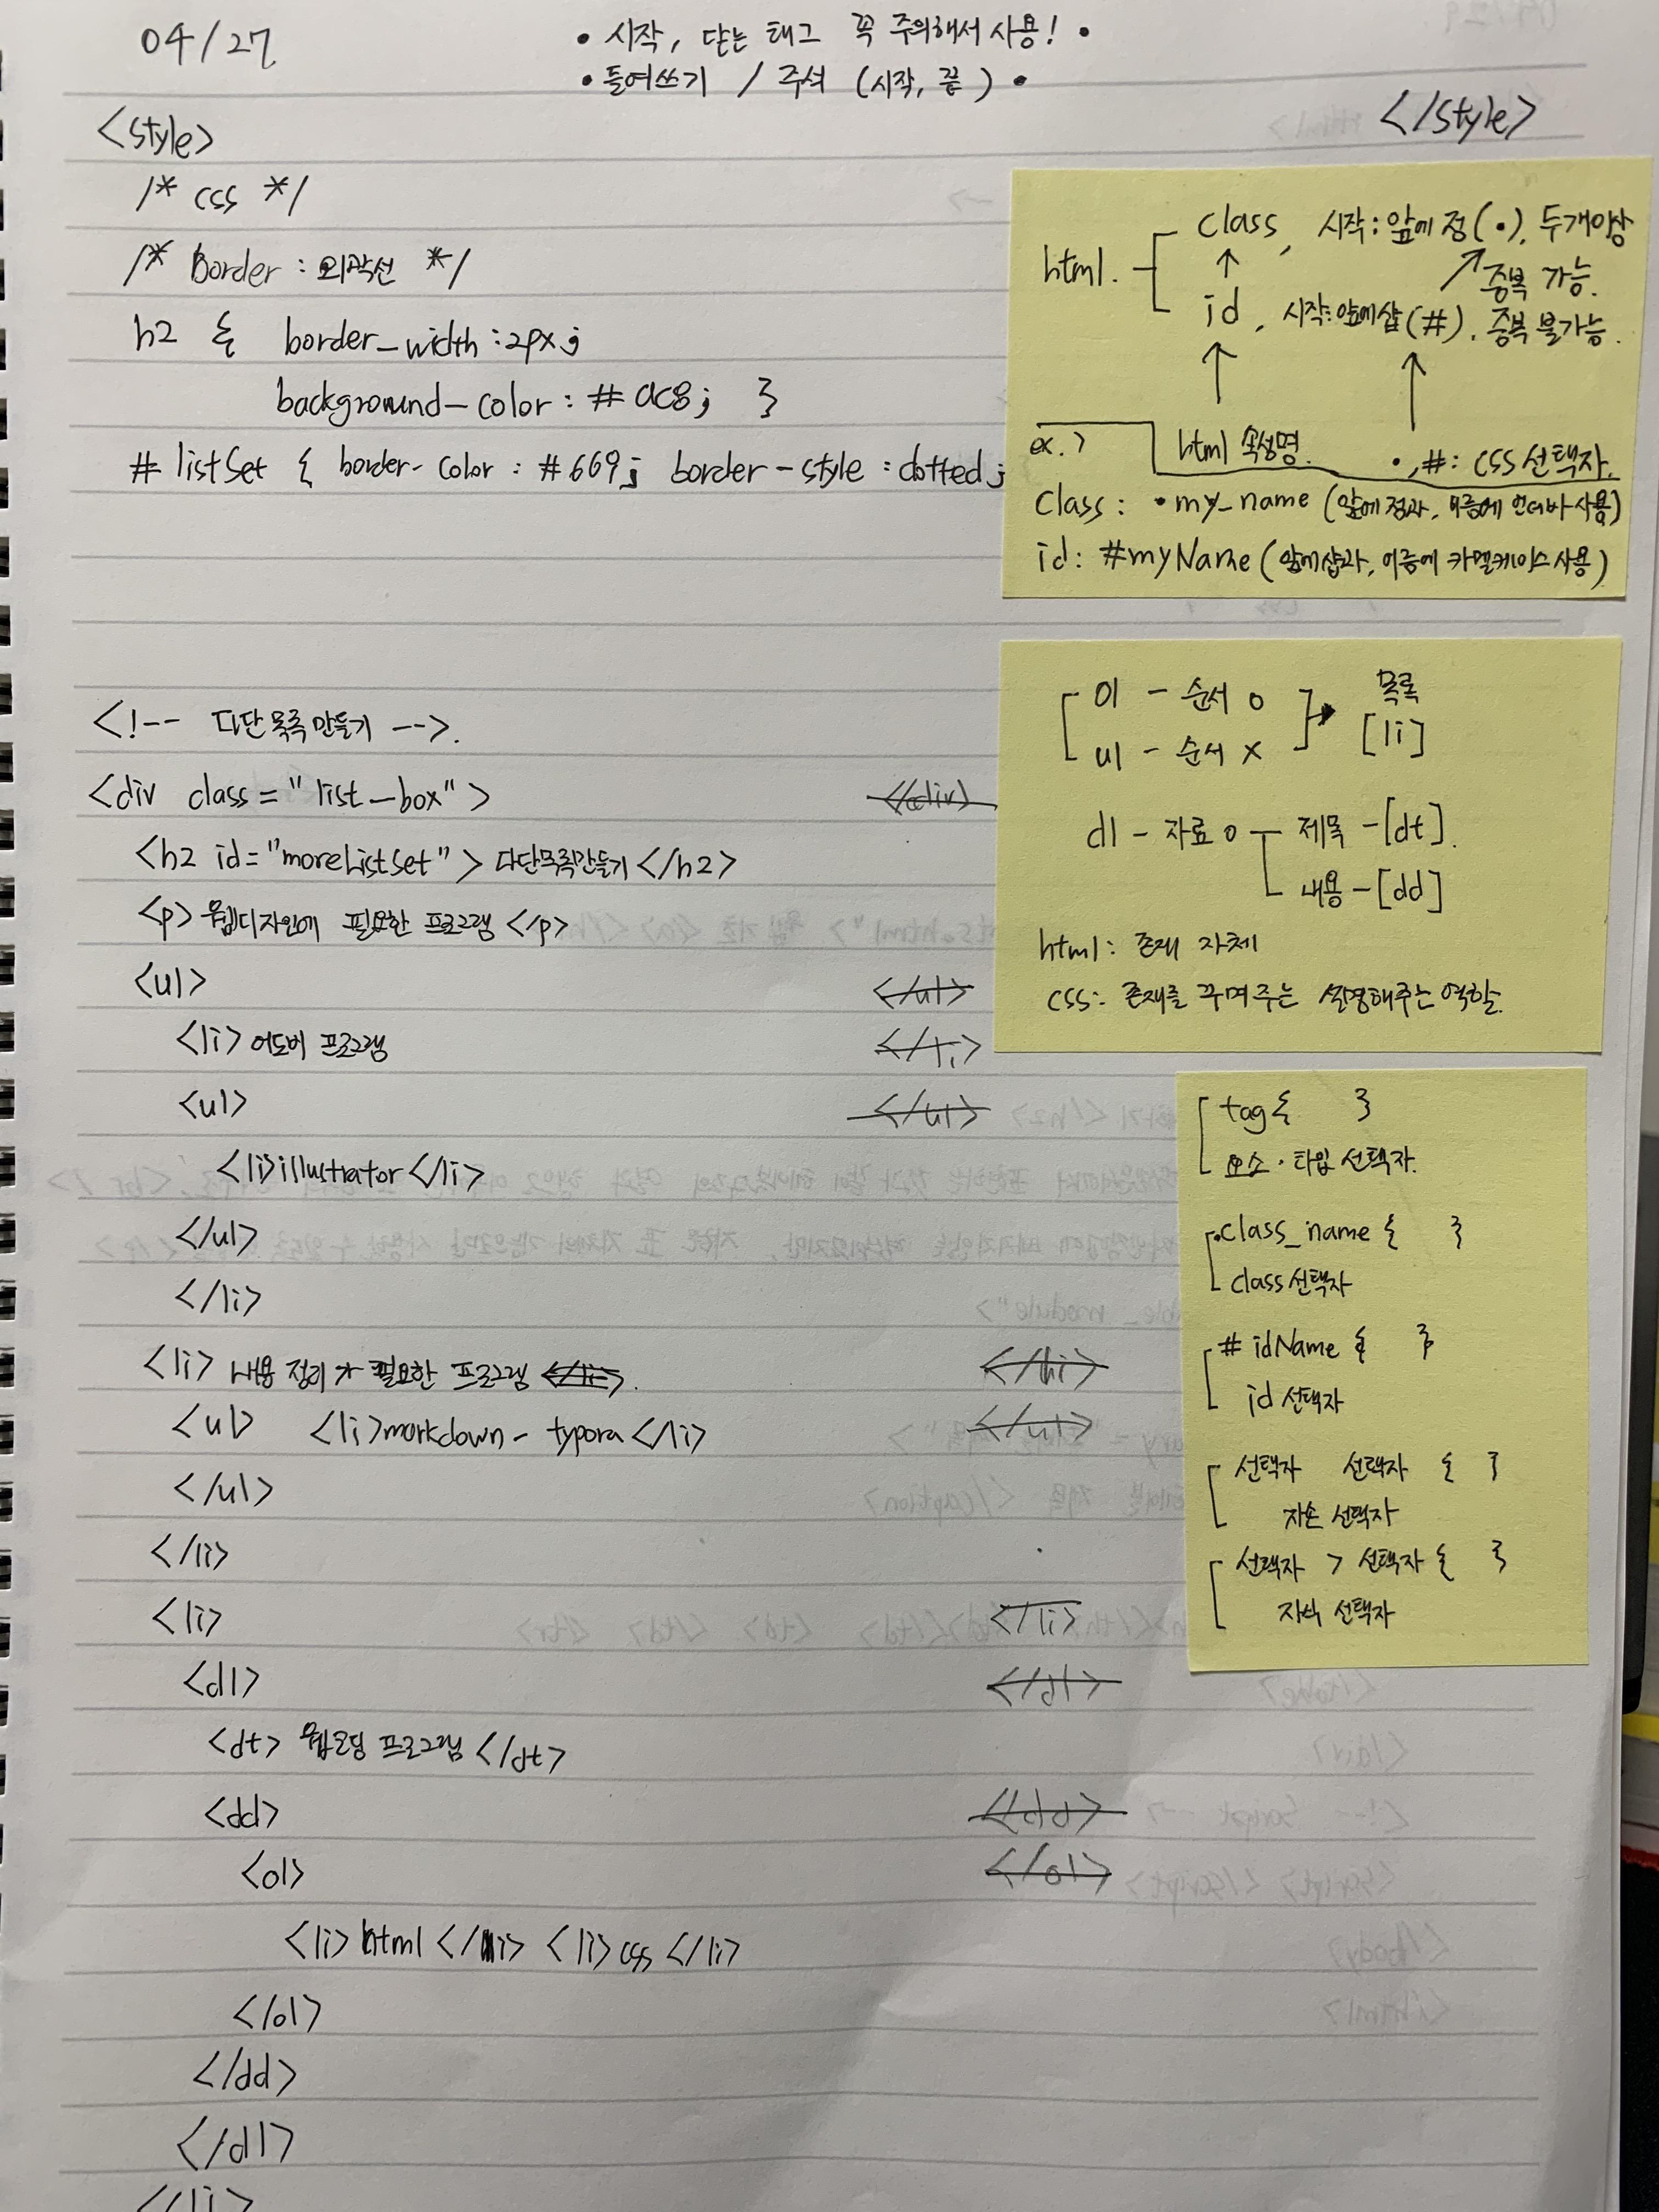 04/27
• 시작, 닫는 태그 꼭 주의해서 사용! •
• 들여쓰기 / 주석 (시작, 끝) •
<style>
</style>
/* css */
/* Border : 외곽선 */
h2 { border_width : 2px;
background-color : #ac8; }
# listSet { border-color : #669; border-style : dotted;
html.
class, 시작 : 앞에 점(•), 두개이상
중복 가능.
id, 시작 : 앞에 샵(#). 중복 불가능.
ex.>
html 속성명.
•, # : css 선택자.
class : •my_name (앞에 점과, 이름에 언더바 사용)
id : #myName (앞에 샵과, 이름에 카멜케이스 사용)
<!-- 다단 목록 만들기 -->.
<div class="list-box"> </div>
<h2 id="moreListSet"> 다단목록만들기 </h2>
<p> 웹디자인에 필요한 프로그램 </p>
<ul> </ul>
<li> 어도비 프로그램 </li>
<ul> </ul>
<li>illustrator</li>
</ul>
</li>
<li> 내용 정리가 필요한 프로그램 </li>. </li>
<ul> <li>markdown - typora</li> </ul>
</ul>
</li>
<li> </li>
<dl> </dl>
<dt> 웹코딩 프로그램 </dt>
<dd> </dd>
<ol> </ol>
<li> html </li> <li> css </li>
</ol>
</dd>
</dl>
</li>
ol - 순서 o
ul - 순서 x
목록
[li]
dl - 자료 o
제목 - [dt].
내용 - [dd]
html : 존재 자체
css : 존재를 꾸며주는 설명해주는 역할.
tag { }
요소 • 타입 선택자.
.class_name { }
class 선택자
# idName { }
id 선택자
선택자 선택자 { }
자손 선택자
선택자 > 선택자 { }
자식 선택자